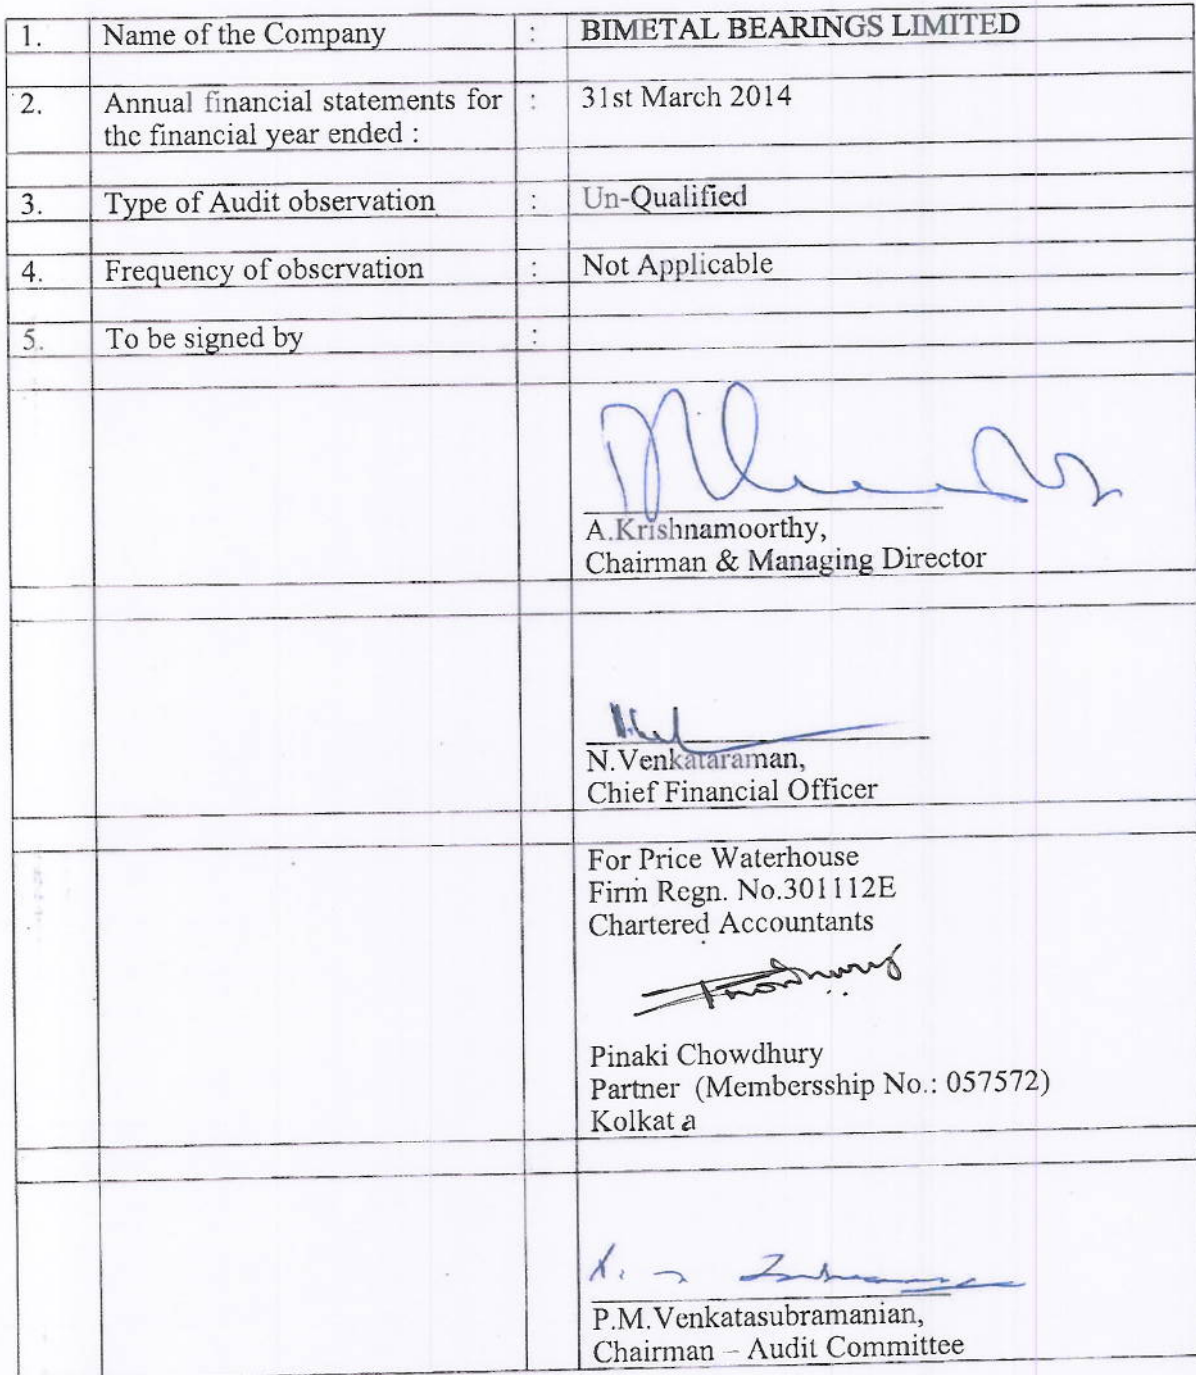 1. Name of the Company : BIMETAL BEARINGS LIMITED
2. Annual financial statements for : 31st March 2014
the financial year ended :
3. Type of Audit observation : Un-Qualified
4. Frequency of observation : Not Applicable
5. To be signed by :
A.Krishnamoorthy,
Chairman & Managing Director
N.Venkataraman,
Chief Financial Officer
For Price Waterhouse
Firm Regn. No.301112E
Chartered Accountants
Pinaki Chowdhury
Partner (Membersship No.: 057572)
Kolkata
P.M.Venkatasubramanian,
Chairman – Audit Committee